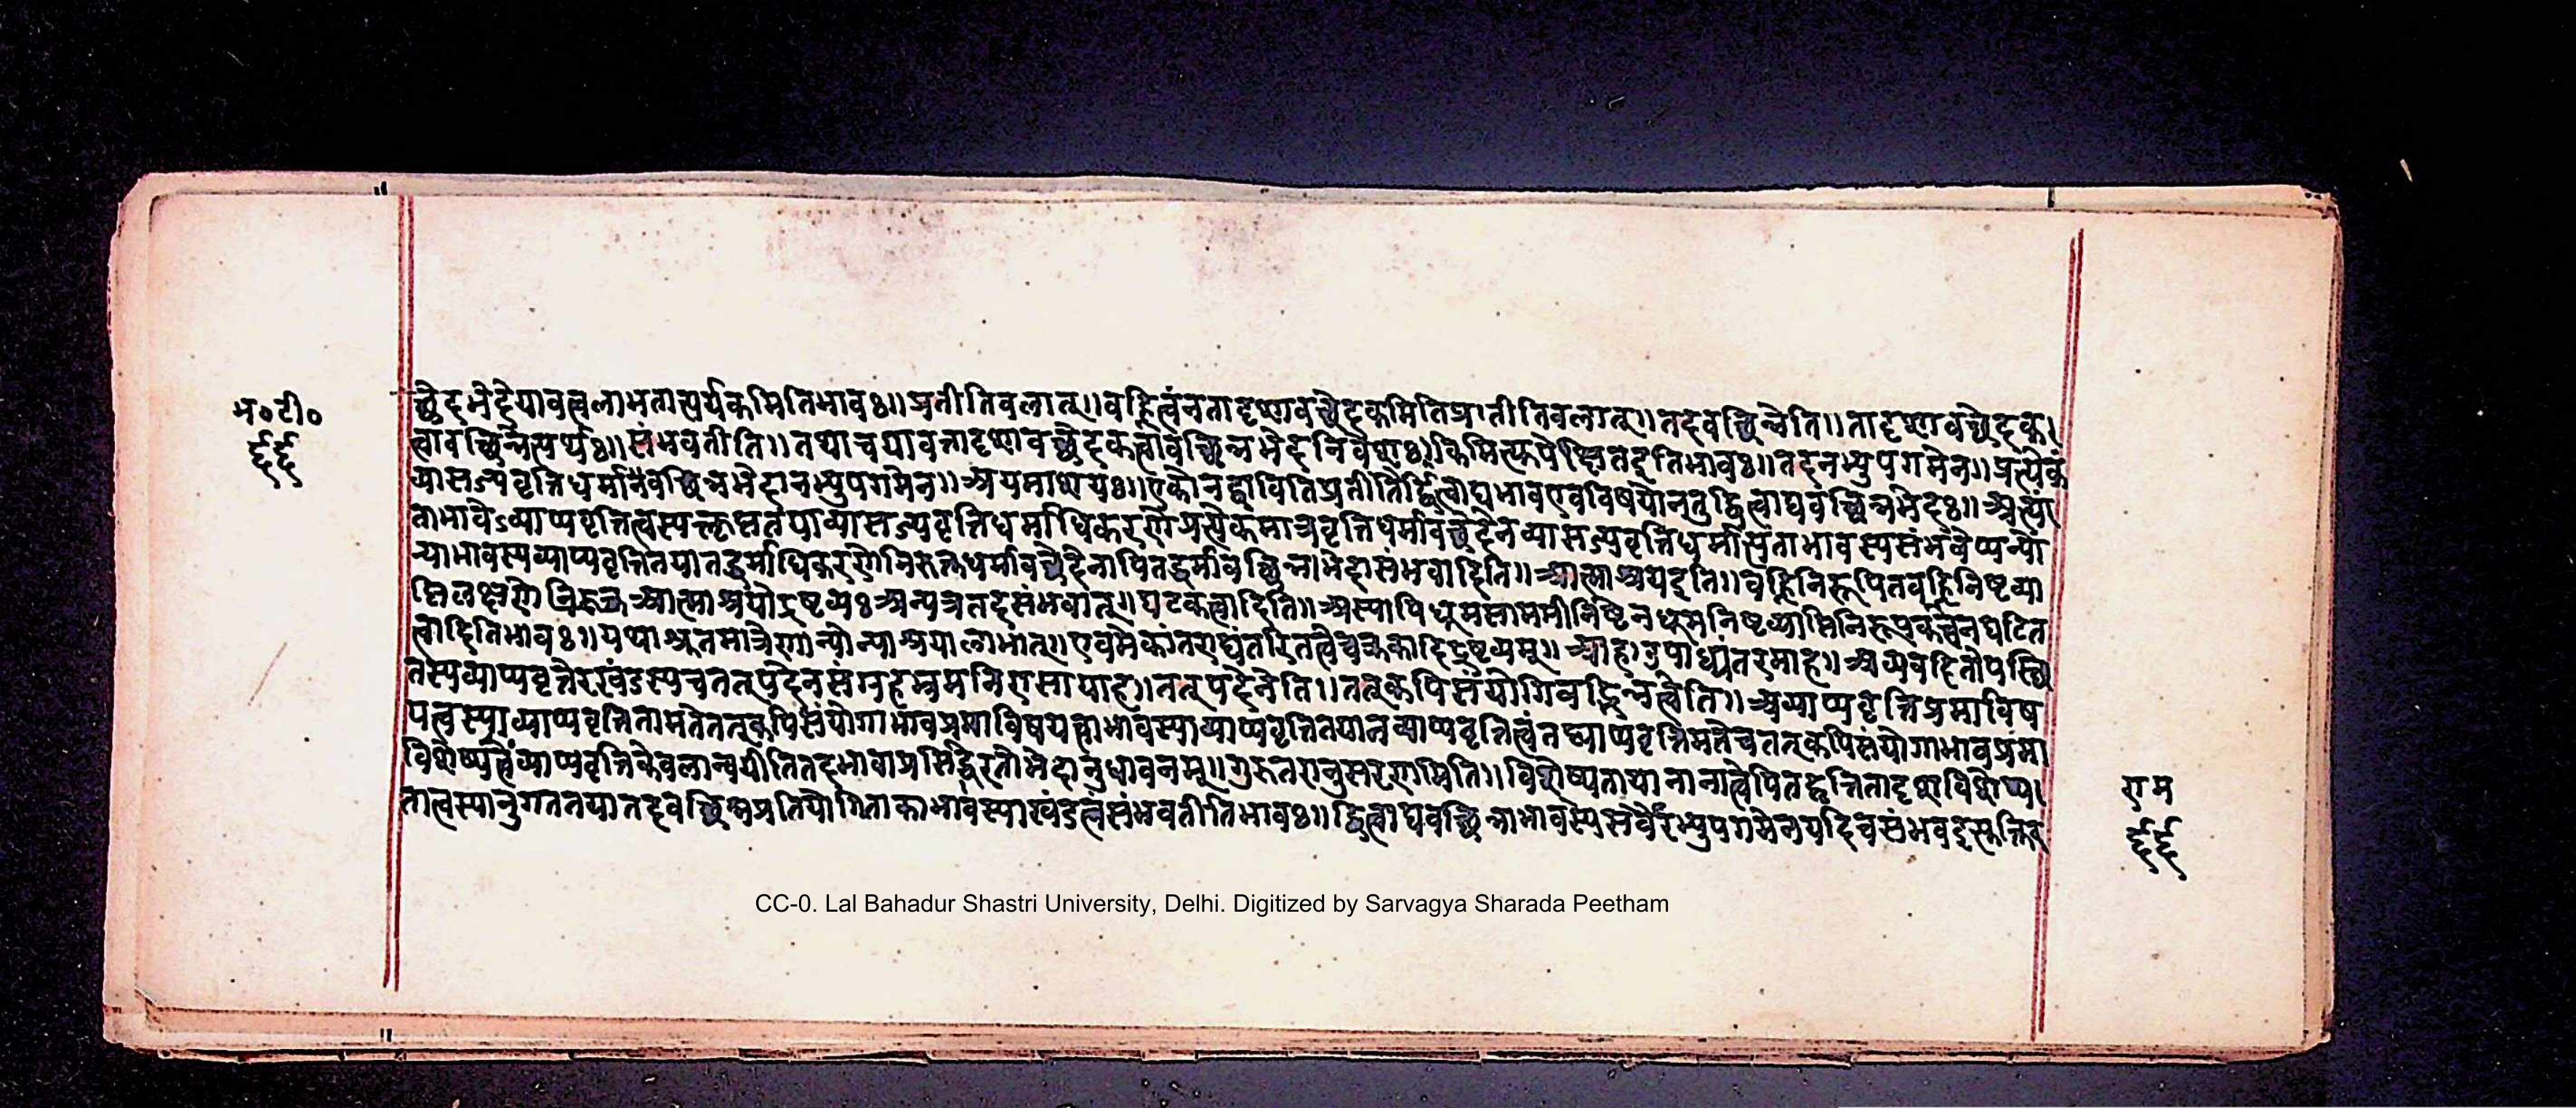 म॰टी॰
६६
च्छेदभेदे यावत्त्वलाभतात्पर्यकमितिभावः॥प्रतीतिवलात्॥वह्नित्वंनतादृशावच्छेदकमितिप्रातीतिवलात्॥तदवच्छिन्नेति॥तादृशावच्छेदक।
त्वावच्छिन्नेत्यर्थः॥संभवतीति॥तथाचयावत्तादृशावच्छेदकत्वावच्छिन्नभेदनिवेशः।किमित्युपेक्षितइतिभावः॥तदनभ्युपगमेन॥प्रत्येकं
व्यासज्यवृत्तिधर्मानवच्छिन्नभेदानभ्युपगमेन॥अयमाशयः॥एकोनद्वावितिप्रतीतेर्द्वित्वाद्यभावएवविषयोनतुद्वित्वाद्यवच्छिन्नभेदः॥अत्यं
ताभावेऽव्याप्यवृत्तित्वस्यक्लृप्ततयाव्यासज्यवृत्तिधर्माधिकरणेप्रत्येकमात्रवृत्तिधर्मावच्छेदेनव्यासज्यवृत्तिधर्मात्यंताभावस्यसंभवेप्यन्यो
न्याभावस्यव्याप्यवृत्तितयातद्धर्माधिकरणेनिरुक्तधर्मावच्छेदेनापितद्धर्मावच्छिन्न।भेदासंभवादिति॥आत्माश्रयइति॥वह्निनिरूपितवह्निनिष्टव्या
प्तिलक्षणे आत्माश्रयोद्रष्टव्यःअन्यत्रतदसंभवात्॥घटकत्वादिति॥अस्यापिधूमसामग्रीनिष्टेनधूमनिष्टव्याप्तिनिरूपकत्वेनघटित
त्वादितिभावः॥यथाश्रुतमात्रेणान्योन्याश्रयालाभात्॥एवमेकांतराद्यंतरितत्वेचक्रकादिद्रष्टव्यम्॥आह।उपाध्यंतरमाह॥अव्यवहितोपस्थि
तस्यव्याप्यवृत्तेरखंडस्यचतत्पदेनसंग्रहभ्रमनिरासायाह।तत्पदेनेति॥तत्कपिसंयोगिवद्भिन्नत्वेति॥अव्याप्यवृत्तिप्रमाविष
यत्वस्याव्याप्यवृत्तितामतेतत्कपिसंयोगाभावप्रमाविषयत्वाभावस्याव्याप्यवृत्तितयानव्याप्यवृत्तित्वंतद्व्याप्यवृत्तिमतेचतत्कपिसंयोगाभावप्रमा
विशेष्यत्वंव्याप्यवृत्तिकेवलान्वयीतितदभावाप्रसिद्धिरतोभेदानुधावनम्॥गुरुतरानुसरणमिति॥विशेष्यतायानानात्वेपितद्वृत्तितादृशविशेष्य।
तात्वस्यानुगततयातदवच्छिन्नप्रतियोगिताकाभावस्याखंडत्वंसंभवतीतिभावः॥द्वित्वाद्यवच्छिन्नाभावस्यसर्वैरभ्युपगमेनयदिचसंभवदुक्तिक
राम
६६
CC-0. Lal Bahadur Shastri University, Delhi. Digitized by Sarvagya Sharada Peetham